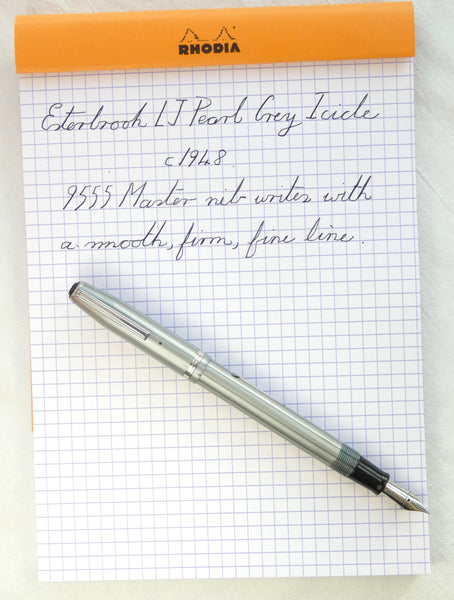 RHODIA
Esterbrook LJ Pearl Grey Icicle
c1948.
9555 Master nib writes with
a smooth, firm, fine line.